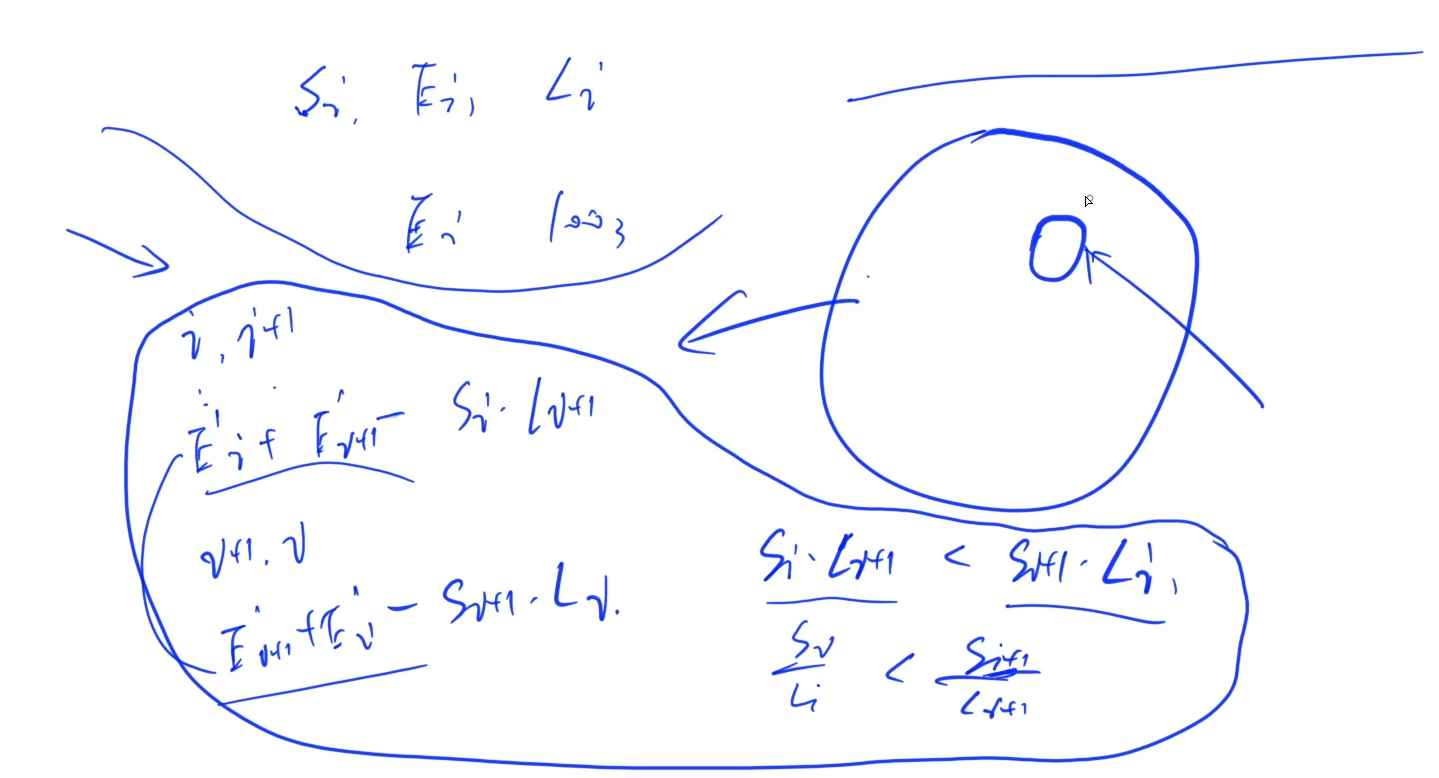 Si, Ei, Li
Ei loss
i, i+1
Ei + Ei+1 - Si · Li+1
i+1, i
Ei+1 + Ei - Si+1 · Li.
Si · Li+1 < Si+1 · Li,
Si/Li < Si+1/Li+1